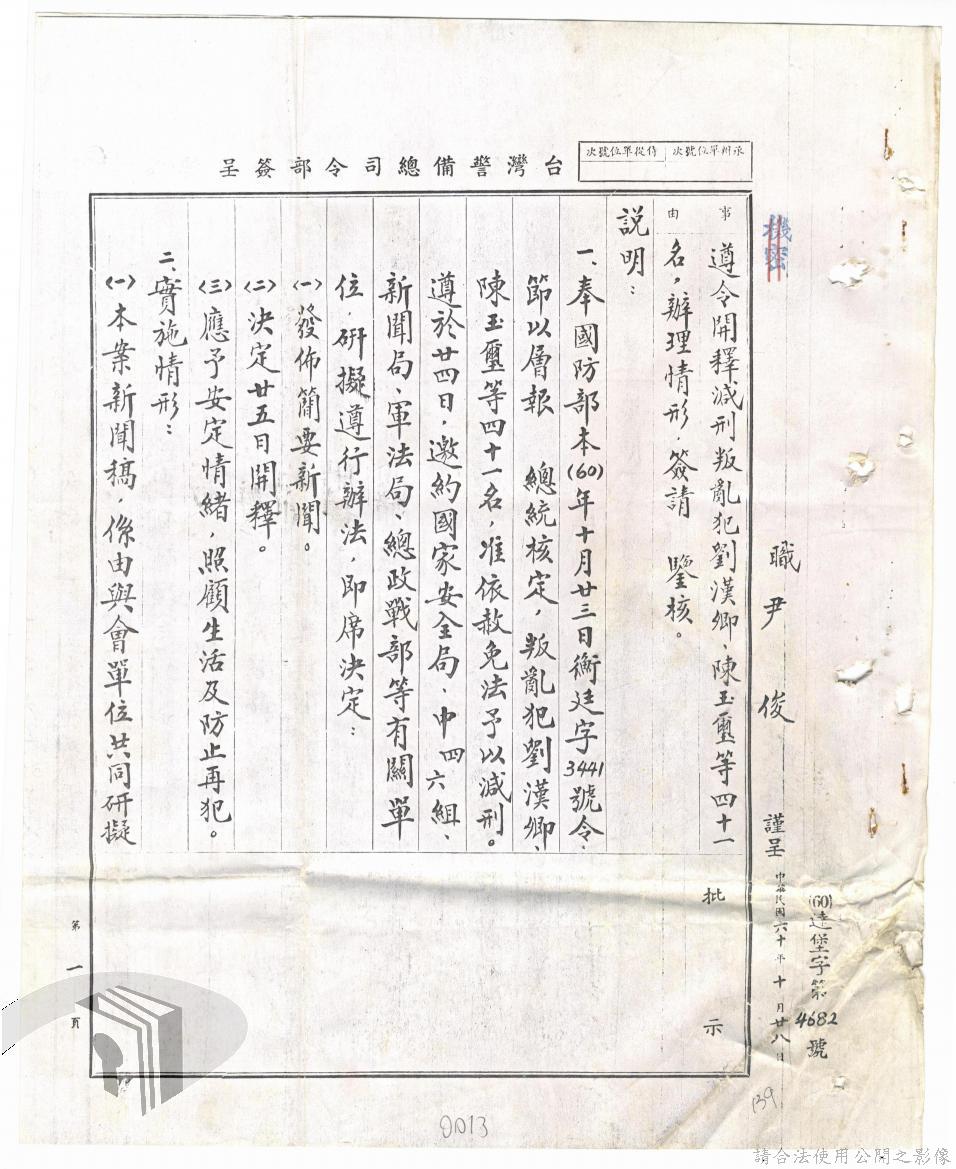 承辦單位號次
侍從單位號次
台灣警備總司令部簽呈
機密
(60)達堡字第4682號
職 尹 俊 謹呈 中華民國六十年十月廿八日
事由
遵令開釋減刑叛亂犯劉漢卿、陳玉璽等四十一
名,辦理情形,簽請 鑒核。
說明:
一、奉國防部本(60)年十月廿三日衡廷字3441號令、
節以層報 總統核定,叛亂犯劉漢卿、
陳玉璽等四十一名,准依赦免法予以減刑。
遵於廿四日,邀約國家安全局、中四六組、
新聞局、軍法局、總政戰部等有關單
位,研擬遵行辦法,即席決定:
(一)發佈簡要新聞。
(二)決定廿五日開釋。
(三)應予安定情緒,照顧生活及防止再犯。
二、實施情形:
(一)本案新聞稿,係由與會單位共同研擬
批示
第一頁
139
0013
請合法使用公開之影像